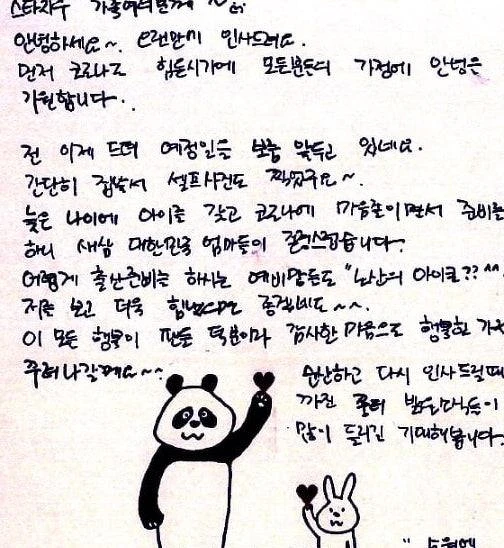 스타지우 가족여러분께 ~
안녕하세요~. 오랜만에 인사드려요.
먼저 코로나로 힘든시기에 모든분들의 가정에 안녕을
기원합니다.
전 이제 드뎌 예정일을 보름 앞두고 있네요.
간단히 집에서 셀프사진도 찍었구요~.
늦은 나이에 아이를 갖고 코로나에 마음졸이면서 준비를
하니 새삼 대한민국 엄마들이 존경스럽습니다.
어렵게 출산준비를 하시는 예비맘들도 "노산의 아이콘?? ^^
저를 보고 더욱 힘내시면 좋겠네요~~.
이 모든 행복이 팬들 덕분이라 감사한 마음으로 행복한 가정
꾸려나갈께요~~
순산하고 다시 인사드릴때
까진 코로나 밝은소식들이
많이 들리길 기대해봅니다.